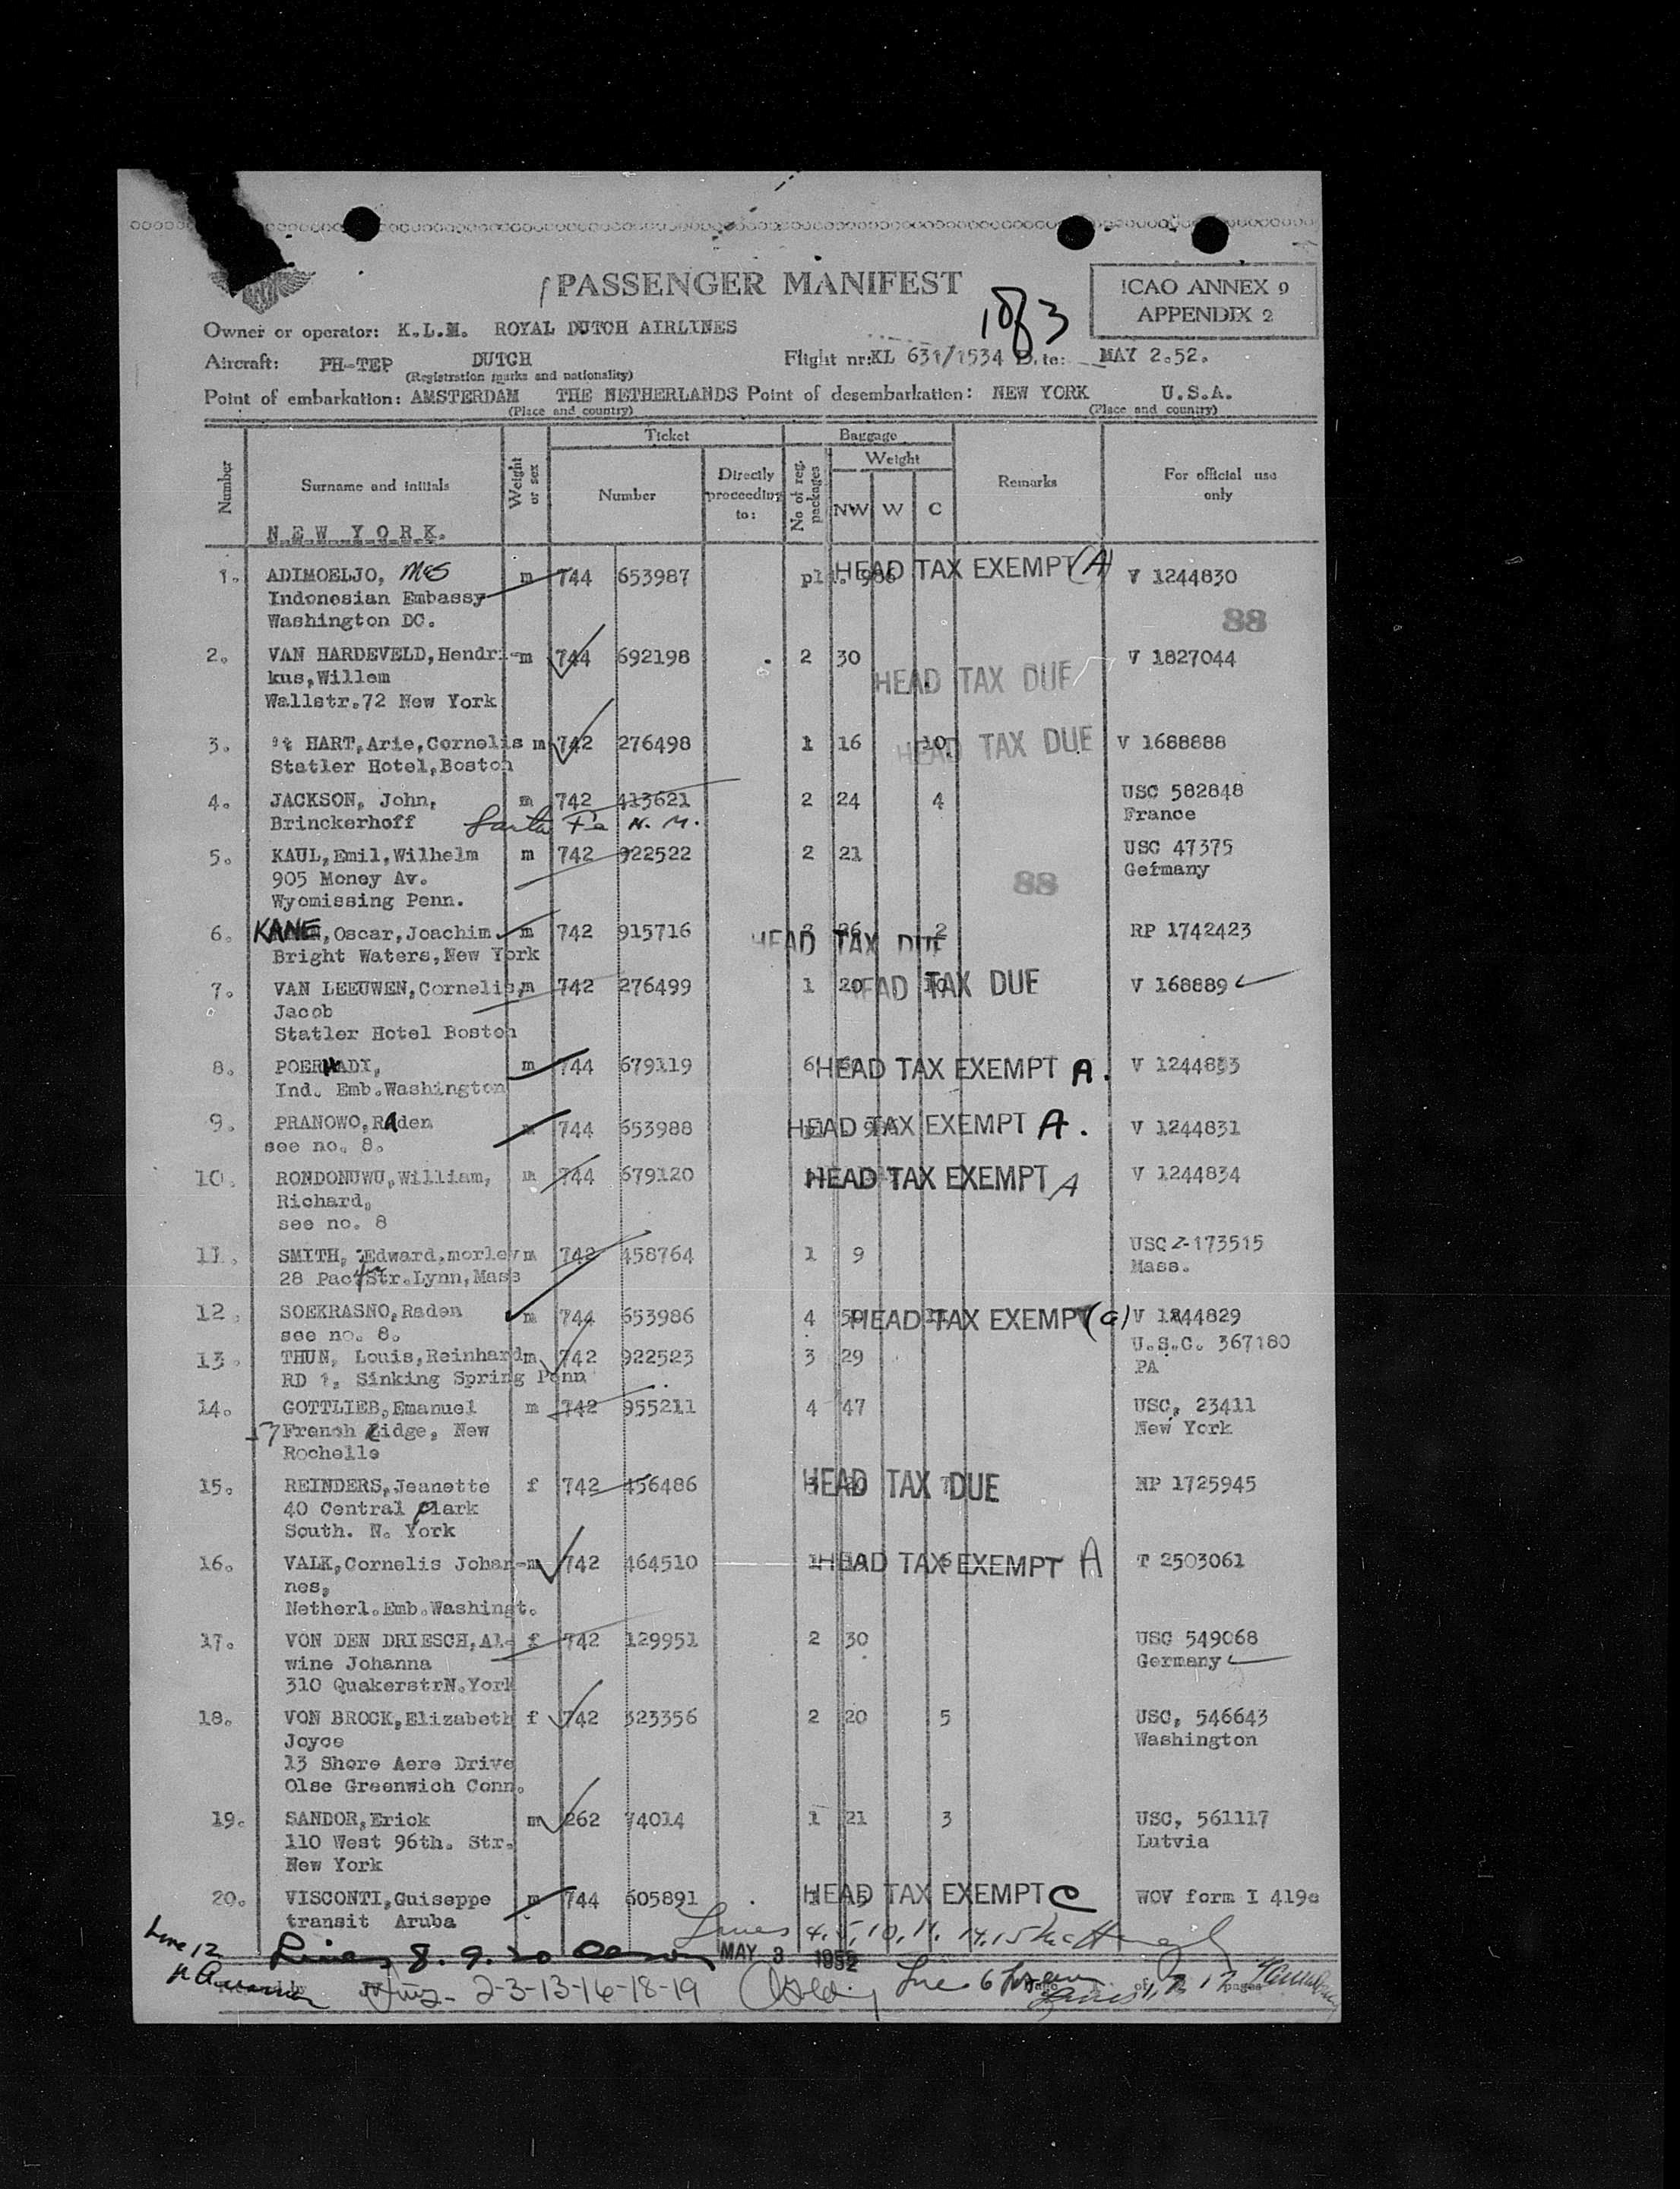 PASSENGER MANIFEST
1 of 3
ICAO ANNEX 9
APPENDIX 2
Owner or operator: K.L.M. ROYAL DUTCH AIRLINES
Aircraft: PH-TEP DUTCH Flight nr: KL 631/1534 Date: MAY 2.52.
(Registration marks and nationality)
Point of embarkation: AMSTERDAM THE NETHERLANDS Point of desembarkation: NEW YORK U.S.A.
(Place and country) (Place and country)
Number Surname and initials Weight or sex Ticket Number Directly proceeding to: No of reg. packages Baggage Weight NW W C Remarks For official use only
N.E.W. Y.O.R.K.
1. ADIMOELJO, m 744 653987 pl. 986 HEAD TAX EXEMPT (A) V 1244830
Indonesian Embassy
Washington DC.
88
2. VAN HARDEVELD, Hendri- m 744 692198 2 30 V 1827044
kus, Willem HEAD TAX DUE
Wallstr.72 New York
3. 't HART, Arie, Cornelis m 742 276498 1 16 10 HEAD TAX DUE V 1688888
Statler Hotel, Boston
4. JACKSON, John, m 742 413621 2 24 4 USC 582848
Brinckerhoff Santa Fe N. M. France
5. KAUL, Emil, Wilhelm m 742 922522 2 21 USC 47375
905 Money Av. Germany
Wyomissing Penn. 88
6. KANE, Oscar, Joachim m 742 915716 3 26 2 HEAD TAX DUE RP 1742423
Bright Waters, New York
7. VAN LEEUWEN, Cornelis, m 742 276499 1 20 10 HEAD TAX DUE V 168889
Jacob
Statler Hotel Boston
8. POERWADI, m 744 679119 6 HEAD TAX EXEMPT A. V 1244833
Ind. Emb. Washington
9. PRANOWO, Raden m 744 653988 HEAD TAX EXEMPT A. V 1244831
see no. 8.
10. RONDONUWU, William, m 744 679120 HEAD TAX EXEMPT A V 1244834
Richard,
see no. 8
11. SMITH, Edward, morley m 742 458764 1 9 USC Z-173515
28 Str. Lynn, Mass Mass.
12. SOEKRASNO, Raden m 744 653986 4 HEAD TAX EXEMPT (a) V 1244829
see no. 8.
13. THUN, Louis, Reinhard m 742 922523 3 29 U.S.C. 367180
RD 1, Sinking Spring Penn PA
14. GOTTLIEB, Emanuel m 742 955211 4 47 USC, 23411
17 French Ridge, New New York
Rochelle
15. REINDERS, Jeanette f 742 456486 3 20 7 HEAD TAX DUE NP 1725945
40 Central Park
South. N. York
16. VALK, Cornelis Johan- m 742 464510 1 6 HEAD TAX EXEMPT A T 2503061
nes,
Netherl. Emb. Washingt.
17. VON DEN DRIESCH, Al- f 742 129951 2 30 USC 549068
wine Johanna Germany
310 QuakerstrN.York
18. VON BROCK, Elizabeth f 742 323356 2 20 5 USC, 546643
Joyce Washington
13 Shore Aere Drive
Olse Greenwich Conn.
19. SANDOR, Erick m 262 74014 1 21 3 USC, 561117
110 West 96th. Str. Lutvia
New York
20. VISCONTI, Guiseppe m 744 605891 1 HEAD TAX EXEMPT C WOV form I 419e
transit Aruba
Lines 4.5,10,11,14,15
Line 12 Lines 8. 9. 20 MAY 3 1952
Lines 2-3-13-16-18-19 Line 6